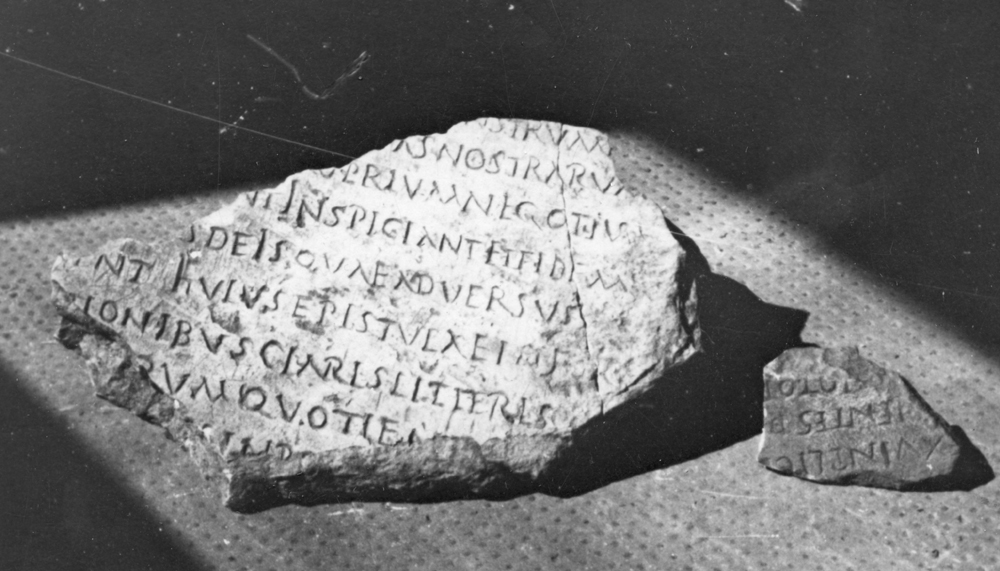 NSTRVM
AS NOSTRARVM
PERIVM NEGOTIIS
NT INSPICIANT ET FIDEM
S DE IS QVAE ADVERSVS
NT HVIVS EPISTVLAE INSE
IONIBVS CLARIS LITTERIS
RVM QVOTIEN
IENTES P